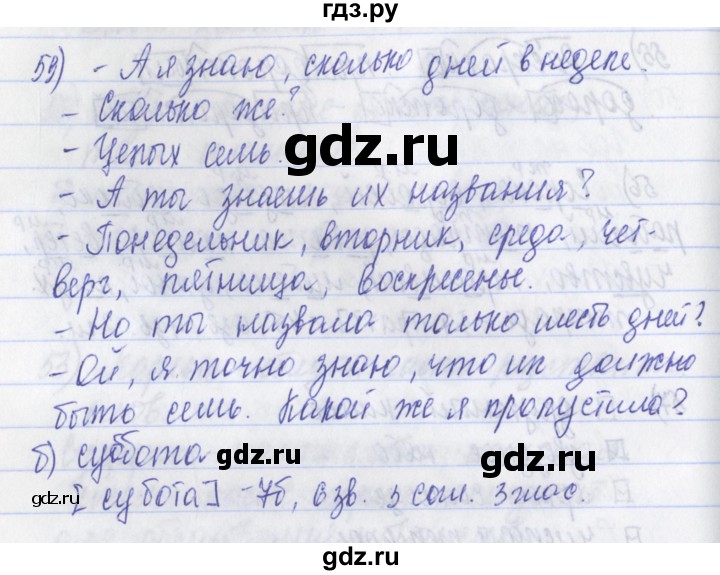 гдз.ру
59) - А я знаю, сколько дней в неделе.
- Сколько же?
gdz.ru
- Целых семь.
- А ты знаешь их названия?
- Понедельник, вторник, среда, чет-
верг, пятница, воскресенье.
- Но ты назвала только шесть дней?
- Ой, я точно знаю, что их должно
быть семь. Какой же я пропустила?
б) суббота
[субота] - 7б, 6 зв. 3 согл. 3 глас.
gdz.ru
gdz.ru
gdz.ru